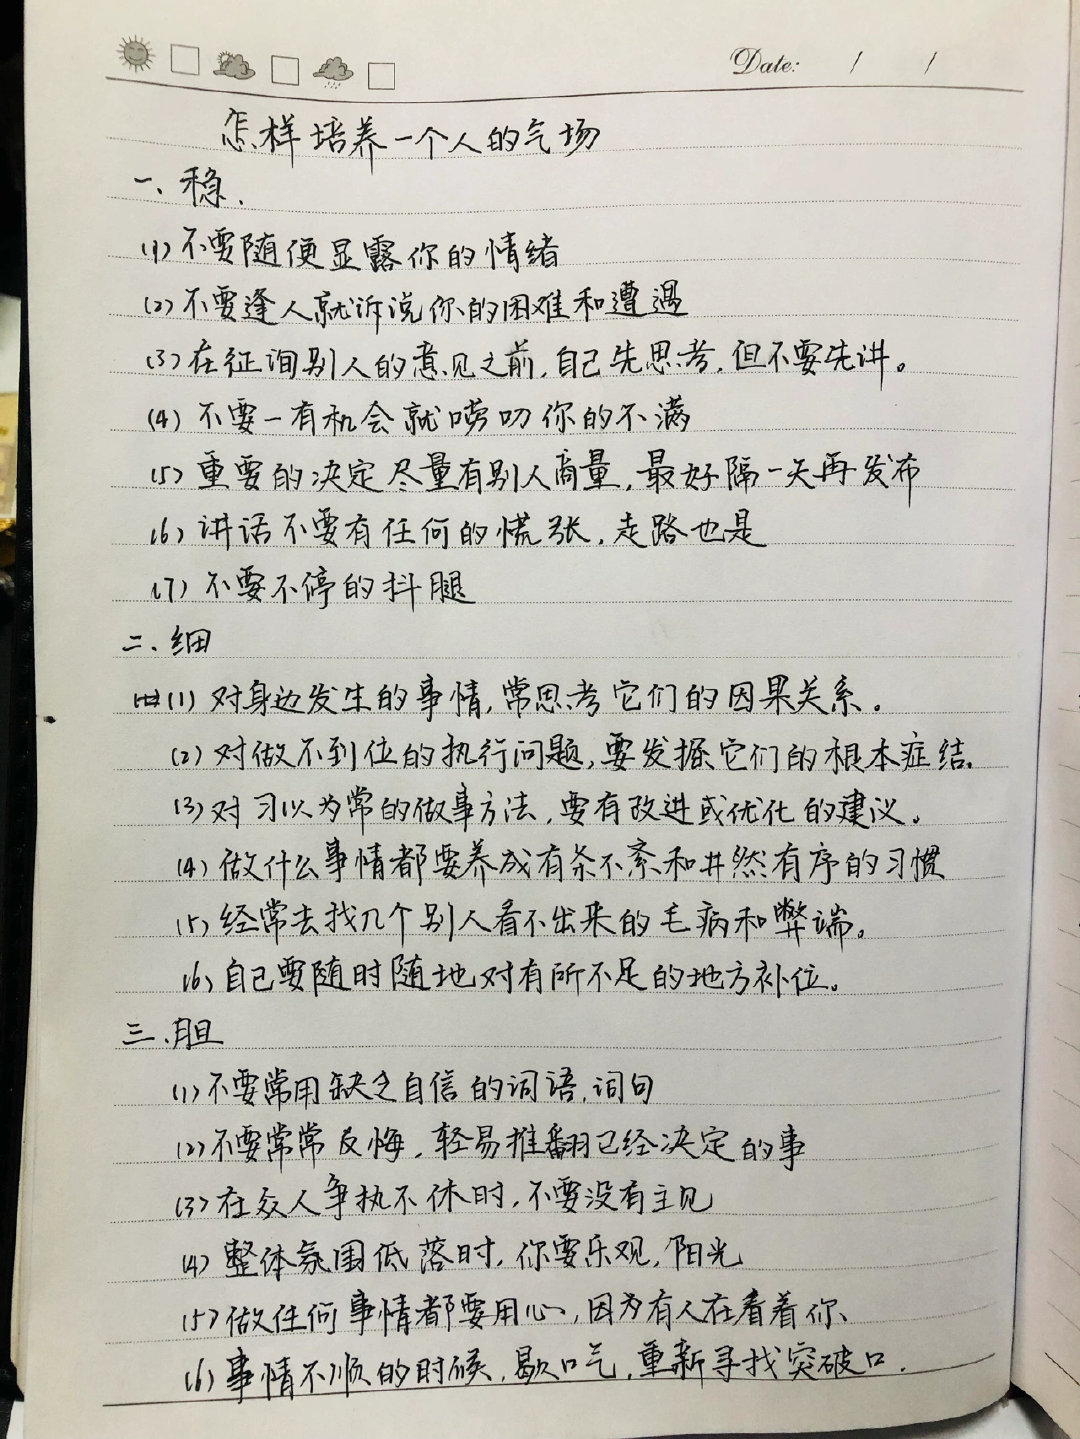 Date: / /
怎样培养一个人的气场
一、稳.
(1) 不要随便显露你的情绪
(2) 不要逢人就诉说你的困难和遭遇
(3) 在征询别人的意见之前,自己先思考,但不要先讲。
(4) 不要一有机会就唠叨你的不满
(5) 重要的决定尽量有别人商量,最好隔一天再发布
(6) 讲话不要有任何的慌张,走路也是
(7) 不要不停的抖腿
二、细
(1) 对身边发生的事情,常思考它们的因果关系。
(2) 对做不到位的执行问题,要发掘它们的根本症结。
(3) 对习以为常的做事方法,要有改进或优化的建议。
(4) 做什么事情都要养成有条不紊和井然有序的习惯
(5) 经常去找几个别人看不出来的毛病和弊端。
(6) 自己要随时随地对有所不足的地方补位。
三、胆
(1) 不要常用缺乏自信的词语,词句
(2) 不要常常反悔,轻易推翻已经决定的事
(3) 在众人争执不休时,不要没有主见
(4) 整体氛围低落时,你要乐观,阳光
(5) 做任何事情都要用心,因为有人在看着你、
(6) 事情不顺的时候,歇口气,重新寻找突破口.